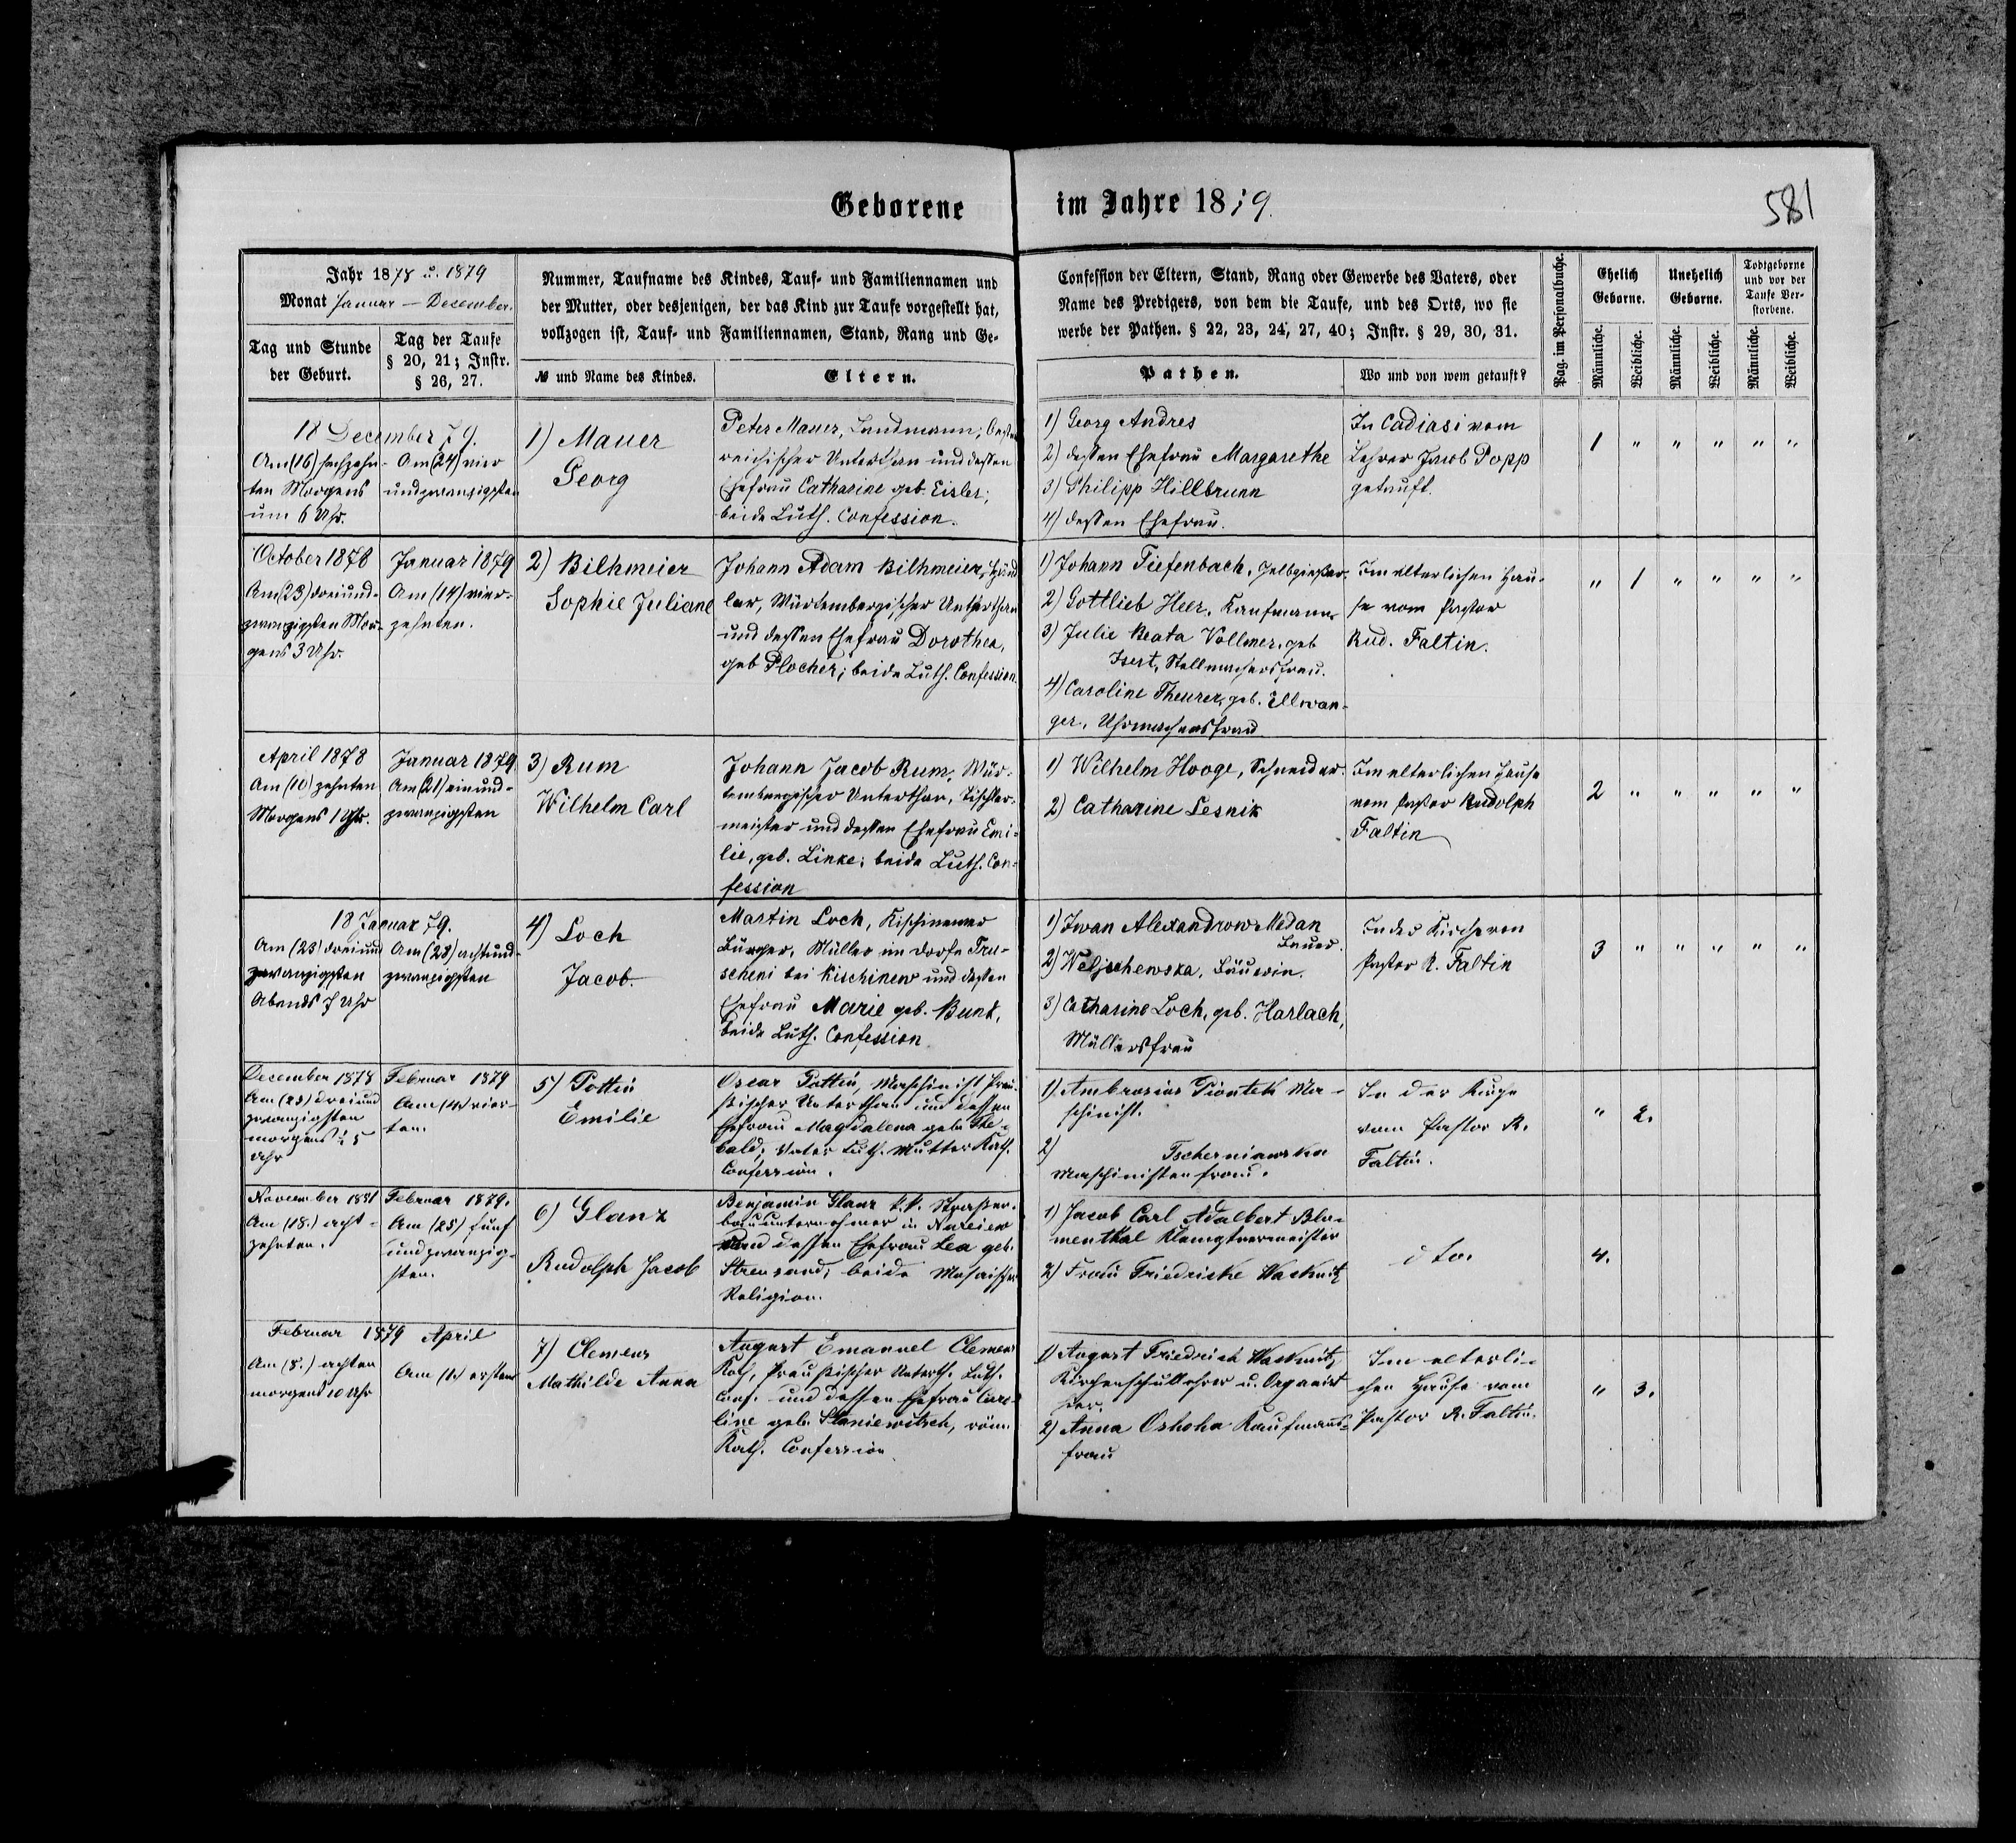 Geborene im Jahre 1879.
581
Jahr 1878 u. 1879
Monat Januar — December.
Tag und Stunde
der Geburt.
Tag der Taufe
§ 20, 21; Instr.
§ 26, 27.
Nummer, Taufname des Kindes, Tauf- und Familiennamen und
der Mutter, oder desjenigen, der das Kind zur Taufe vorgestellt hat,
vollzogen ist, Tauf- und Familiennamen, Stand, Rang und Ge-
№ und Name des Kindes.
Eltern.
Confession der Eltern, Stand, Rang oder Gewerbe des Vaters, oder
Name des Predigers, von dem die Taufe, und des Orts, wo sie
werbe der Pathen. § 22, 23, 24, 27, 40; Instr. § 29, 30, 31.
Pathen.
Wo und von wem getauft?
Pag. im Personalbuche.
Ehelich
Geborne.
Unehelich
Geborne.
Todtgeborne
und vor der
Taufe Ver-
storbene.
Männliche.
Weibliche.
Männliche.
Weibliche.
Männliche.
Weibliche.
18 December 79.
Am (16) sechzehn-
ten Morgens
um 6 Uhr.
Am (24) vier
undzwanzigsten
1) Mauer
Georg
Peter Mauer, Landmann; Oester
reichischer Unterthan und dessen
Ehefrau Catharine geb. Eisler;
beide Luth. Confession.
1) Georg Andres
2) dessen Ehefrau Margarethe
3) Philipp Hillbrunn
4) dessen Ehefrau.
In Cadiasi vom
Lehrer Jacob Popp
getauft.
1 " " " " "
October 1878
Am (23) dreiund-
zwanzigsten Mor-
gens 3 Uhr.
Januar 1879
Am (14) vier-
zehnten.
2) Bilhmeier
Sophie Juliane
Johann Adam Bilhmeier, Händ
ler, Würtembergischer Unterthan
und dessen Ehefrau Dorothea,
geb Plocher; beide Luth. Confession.
1) Johann Tiefenbach, Gelbgießer.
2) Gottlieb Heer, Kaufmann
3) Julie Beata Vollmer, geb
Isert, Stellmachersfrau.
4) Caroline Theurer, geb. Ellwan-
ger, Uhrmachersfrau
Im elterlichen Hau-
se vom Pastor
Rud. Faltin.
" 1 " " " "
April 1878
Am (10) zehnten
Morgens 1 Uhr.
Januar 1879
Am (21) einund-
zwanzigsten
3) Rum
Wilhelm Carl
Johann Jacob Rum, Wür-
tembergischer Unterthan, Tischler-
meister und dessen Ehefrau Emi-
lie, geb. Linke; beide Luth. Con-
fession
1) Wilhelm Hooge, Schneider.
2) Catharine Lesnik
Im elterlichen Hause
vom Pastor Rudolph
Faltin
2 " " " " "
18 Januar 79.
Am (23) dreiund
zwanzigsten
Abends 7 Uhr
Am (28) achtund-
zwanzigsten
4) Loch
Jacob.
Martin Loch, Kischinewer
Bürger, Müller im Dorfe Tru-
scheni bei Kischinew und dessen
Ehefrau Marie geb. Bunk,
beide Luth. Confession
1) Iwan Alexandrow Medan
Bauer.
2) Weljschewska, Bäuerin.
3) Catharine Loch, geb. Harlach,
Müllersfrau
In der Kirche von
Pastor R. Faltin
3 " " " " "
December 1878
Am (23) dreiund
zwanzigsten
morgens ½ 5
Uhr
Februar 1879
Am (4) vier-
ten.
5) Pottin
Emilie
Oscar Pottin, Maschinist Preu-
ßischer Unterthan und dessen
Ehefrau Magdalena geb.
Vater Luth. Mutter Kath.
Confession.
1) Ambrosius Piontek Ma-
schinist.
2) Tscherniawska
Maschinistenfrau.
In der Kirche
vom Pastor R.
Faltin.
" 2.
November 1851
Am (18.) acht-
zehnten.
Februar 1879.
Am (25) fünf
undzwanzig-
sten.
6) Glanz
Rudolph Jacob
Benjamin Glanz k.k. Straßen-
bauunternehmer in
und dessen Ehefrau Lea geb.
Streusand; beide Mosaischer
Religion.
1) Jacob Carl Adalbert Blu-
menthal Klempnermeister
2) Frau Friedricke Waschnitz
ito.
4.
Februar 1879
Am (8.) achten
morgens 10 Uhr
April
Am (1.) ersten
7) Clemens
Mathilde Anna
August Emanuel Clemens
Koch, Preußischer Unterth. Luth.
Conf. und dessen Ehefrau Caro-
line geb. Staniewitsch, röm.
Kath. Confession
1) August Friedrich Waschnitz
Kirchenschullehrer u. Organist
2) Anna Oshoha Kaufmanns-
frau
Im elterli-
chen Hause vom
Pastor R. Faltin.
" 3.